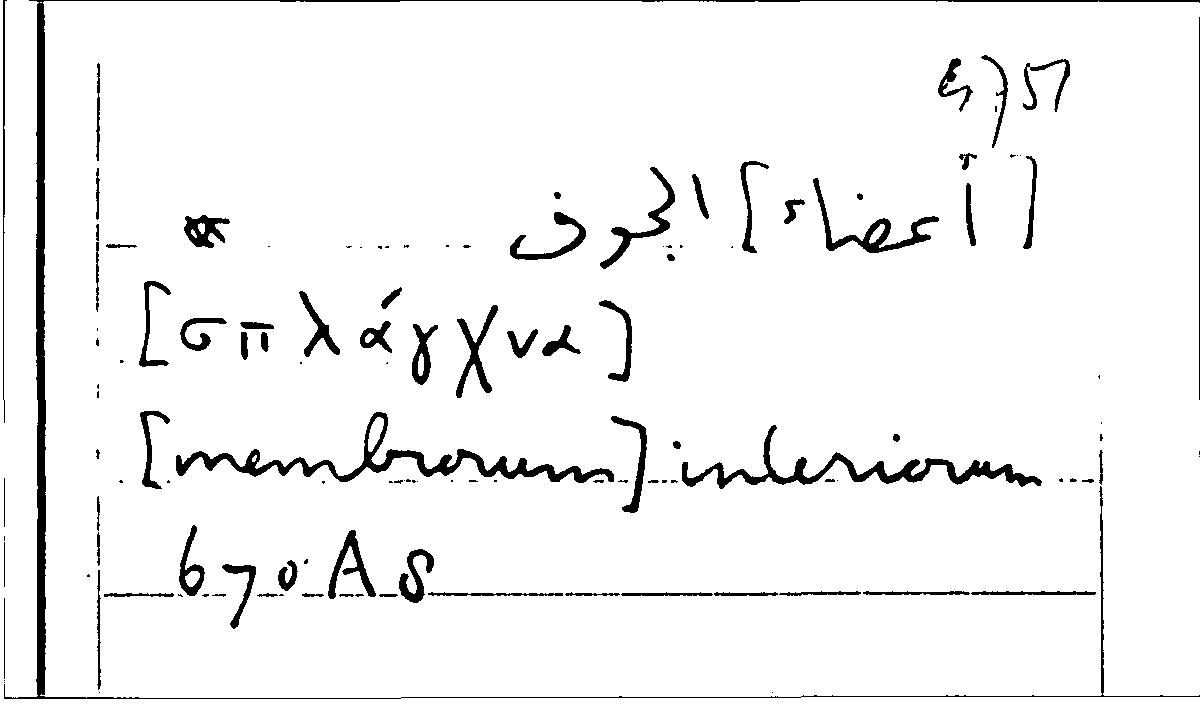 [أعضاء] الجوف
[σπλάγχνα]
[membrorum] interiorum
670 A 8